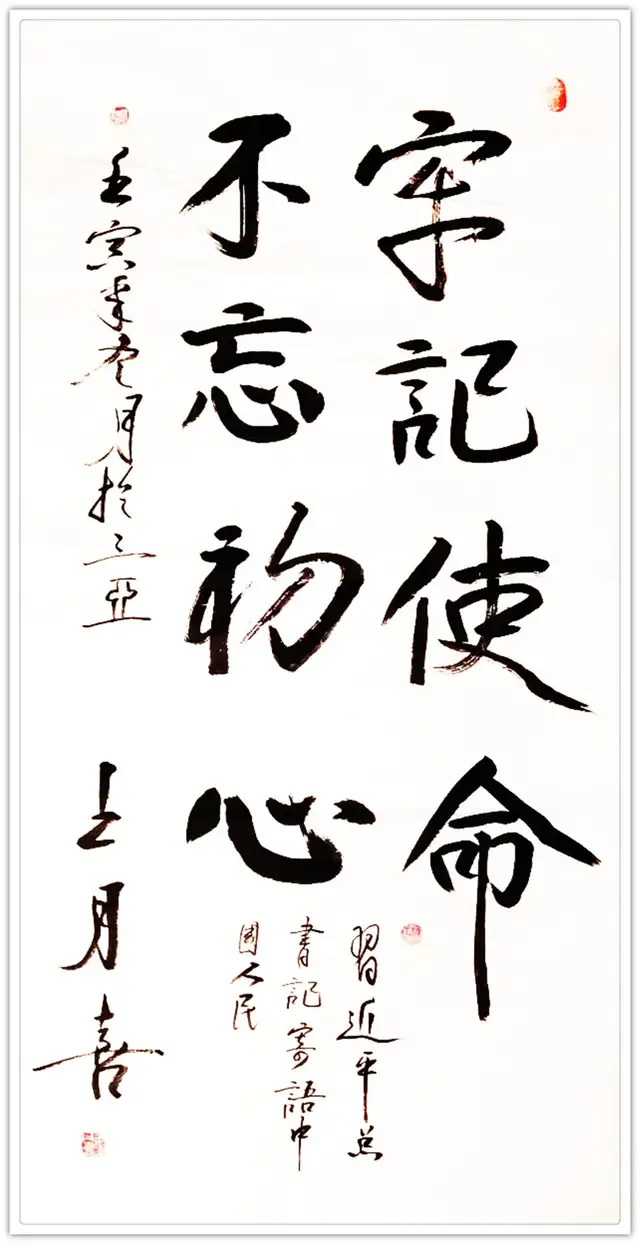 牢記使命
不忘初心
習近平总
書記寄語中
國人民
壬寅年冬月於三亞
王月喜